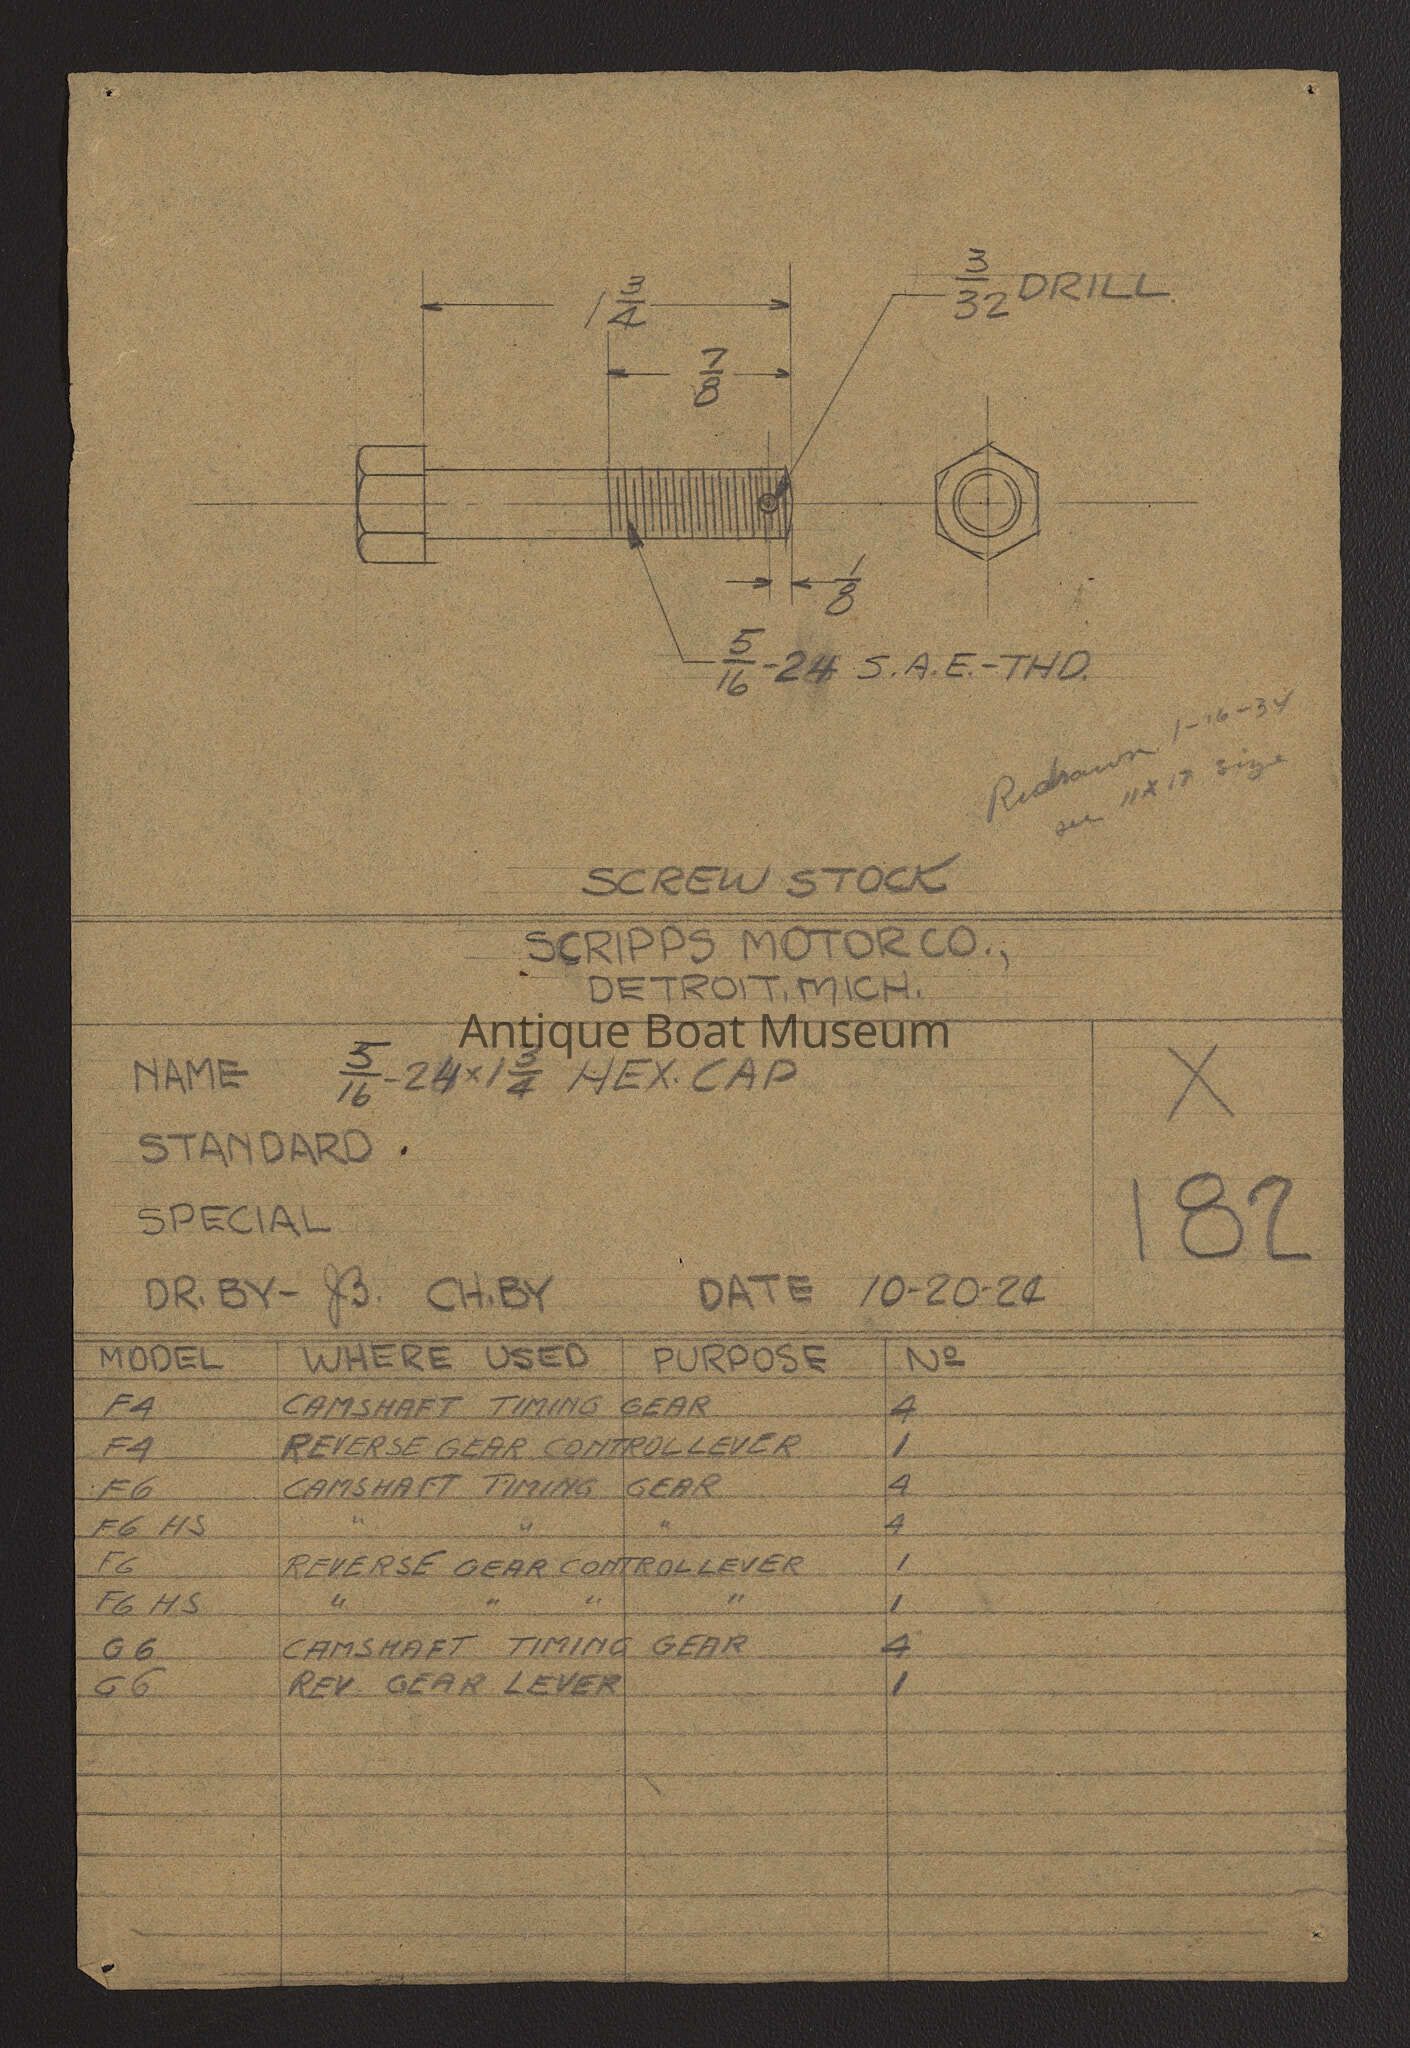 1 3/4
3/32 DRILL.
7/8
1/8
5/16-24 S.A.E.-THD.
Redrawn 1-16-34
see 11x17 size
SCREW STOCK
SCRIPPS MOTOR CO.,
DETROIT, MICH.
Antique Boat Museum
NAME 5/16-24x1 3/4 HEX. CAP
X
STANDARD .
182
SPECIAL
DR. BY- JB. CH. BY DATE 10-20-24
MODEL WHERE USED PURPOSE Nº
F4 CAMSHAFT TIMING GEAR 4
F4 REVERSE GEAR CONTROL LEVER 1
F6 CAMSHAFT TIMING GEAR 4
F6 HS " " " 4
F6 REVERSE GEAR CONTROL LEVER 1
F6 HS " " " " 1
G6 CAMSHAFT TIMING GEAR 4
G6 REV. GEAR LEVER 1